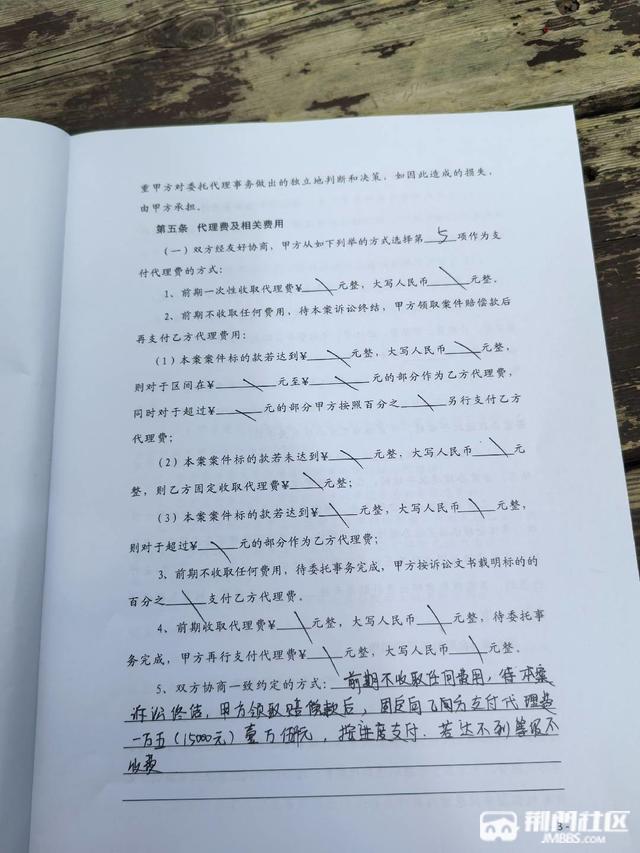 重甲方对委托代理事务做出的独立地判断和决策,如因此造成的损失,
由甲方承担。
第五条 代理费及相关费用
(一)双方经友好协商,甲方从如下列举的方式选择第 5 项作为支
付代理费的方式:
1、前期一次性收取代理费¥____元整,大写人民币____元整。
2、前期不收取任何费用,待本案诉讼终结,甲方领取案件赔偿款后
再支付乙方代理费用:
(1)本案案件标的款若达到¥____元整,大写人民币____元整,
则对于区间在¥____元至¥____元的部分作为乙方代理费,
同时对于超过¥____元的部分甲方按照百分之____另行支付乙方
代理费;
(2)本案案件标的款若未达到¥____元整,大写人民币____元
整,则乙方固定收取代理费¥____元整;
(3)本案案件标的款若达到¥____元整,大写人民币____元整,
则对于超过¥____元的部分作为乙方代理费;
3、前期不收取任何费用,待委托事务完成,甲方按诉讼文书载明标的的
百分之____支付乙方代理费。
4、前期收取代理费¥____元整,大写人民币____元整,待委托事
务完成,甲方再行支付代理费¥____元整,大写人民币____元整。
5、双方协商一致约定的方式:前期不收取任何费用,待本案
诉讼终结,甲方领取赔偿款后,固定向乙方支付代理费
一万五(15000元)壹万伍仟元,按进度支付.若达不到等级不
收费
3
荆门社区
JMBBS.COM